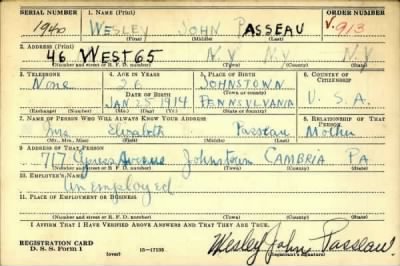 SERIAL NUMBER 1. NAME (Print) ORDER NUMBER
1940 WESLEY JOHN PASSEAU V.913
(First) (Middle) (Last)
2. ADDRESS (Print)
46 WEST 65 N.Y. N.Y. N.Y.
(Number and street or R. F. D. number) (Town) (County) (State)
3. TELEPHONE 4. AGE IN YEARS 5. PLACE OF BIRTH 6. COUNTRY OF CITIZENSHIP
None 26 JOHNSTOWN
DATE OF BIRTH (Town or county)
JAN 25 1914 PENNSYLVANIA U. S. A.
(Exchange) (Number) (Mo.) (Day) (Yr.) (State or country)
7. NAME OF PERSON WHO WILL ALWAYS KNOW YOUR ADDRESS 8. RELATIONSHIP OF THAT PERSON
Mrs. Elizabeth Passeau Mother
(Mr., Mrs., Miss) (First) (Middle) (Last)
9. ADDRESS OF THAT PERSON
717 Avenue Johnstown CAMBRIA PA
(Number and street or R. F. D. number) (Town) (County) (State)
10. EMPLOYER'S NAME
Unemployed
11. PLACE OF EMPLOYMENT OR BUSINESS
(Number and street or R. F. D. number) (Town) (County) (State)
I AFFIRM THAT I HAVE VERIFIED ABOVE ANSWERS AND THAT THEY ARE TRUE.
REGISTRATION CARD
D. S. S. Form 1 (over) 16—17105 Wesley John Passeau
(Registrant's signature)